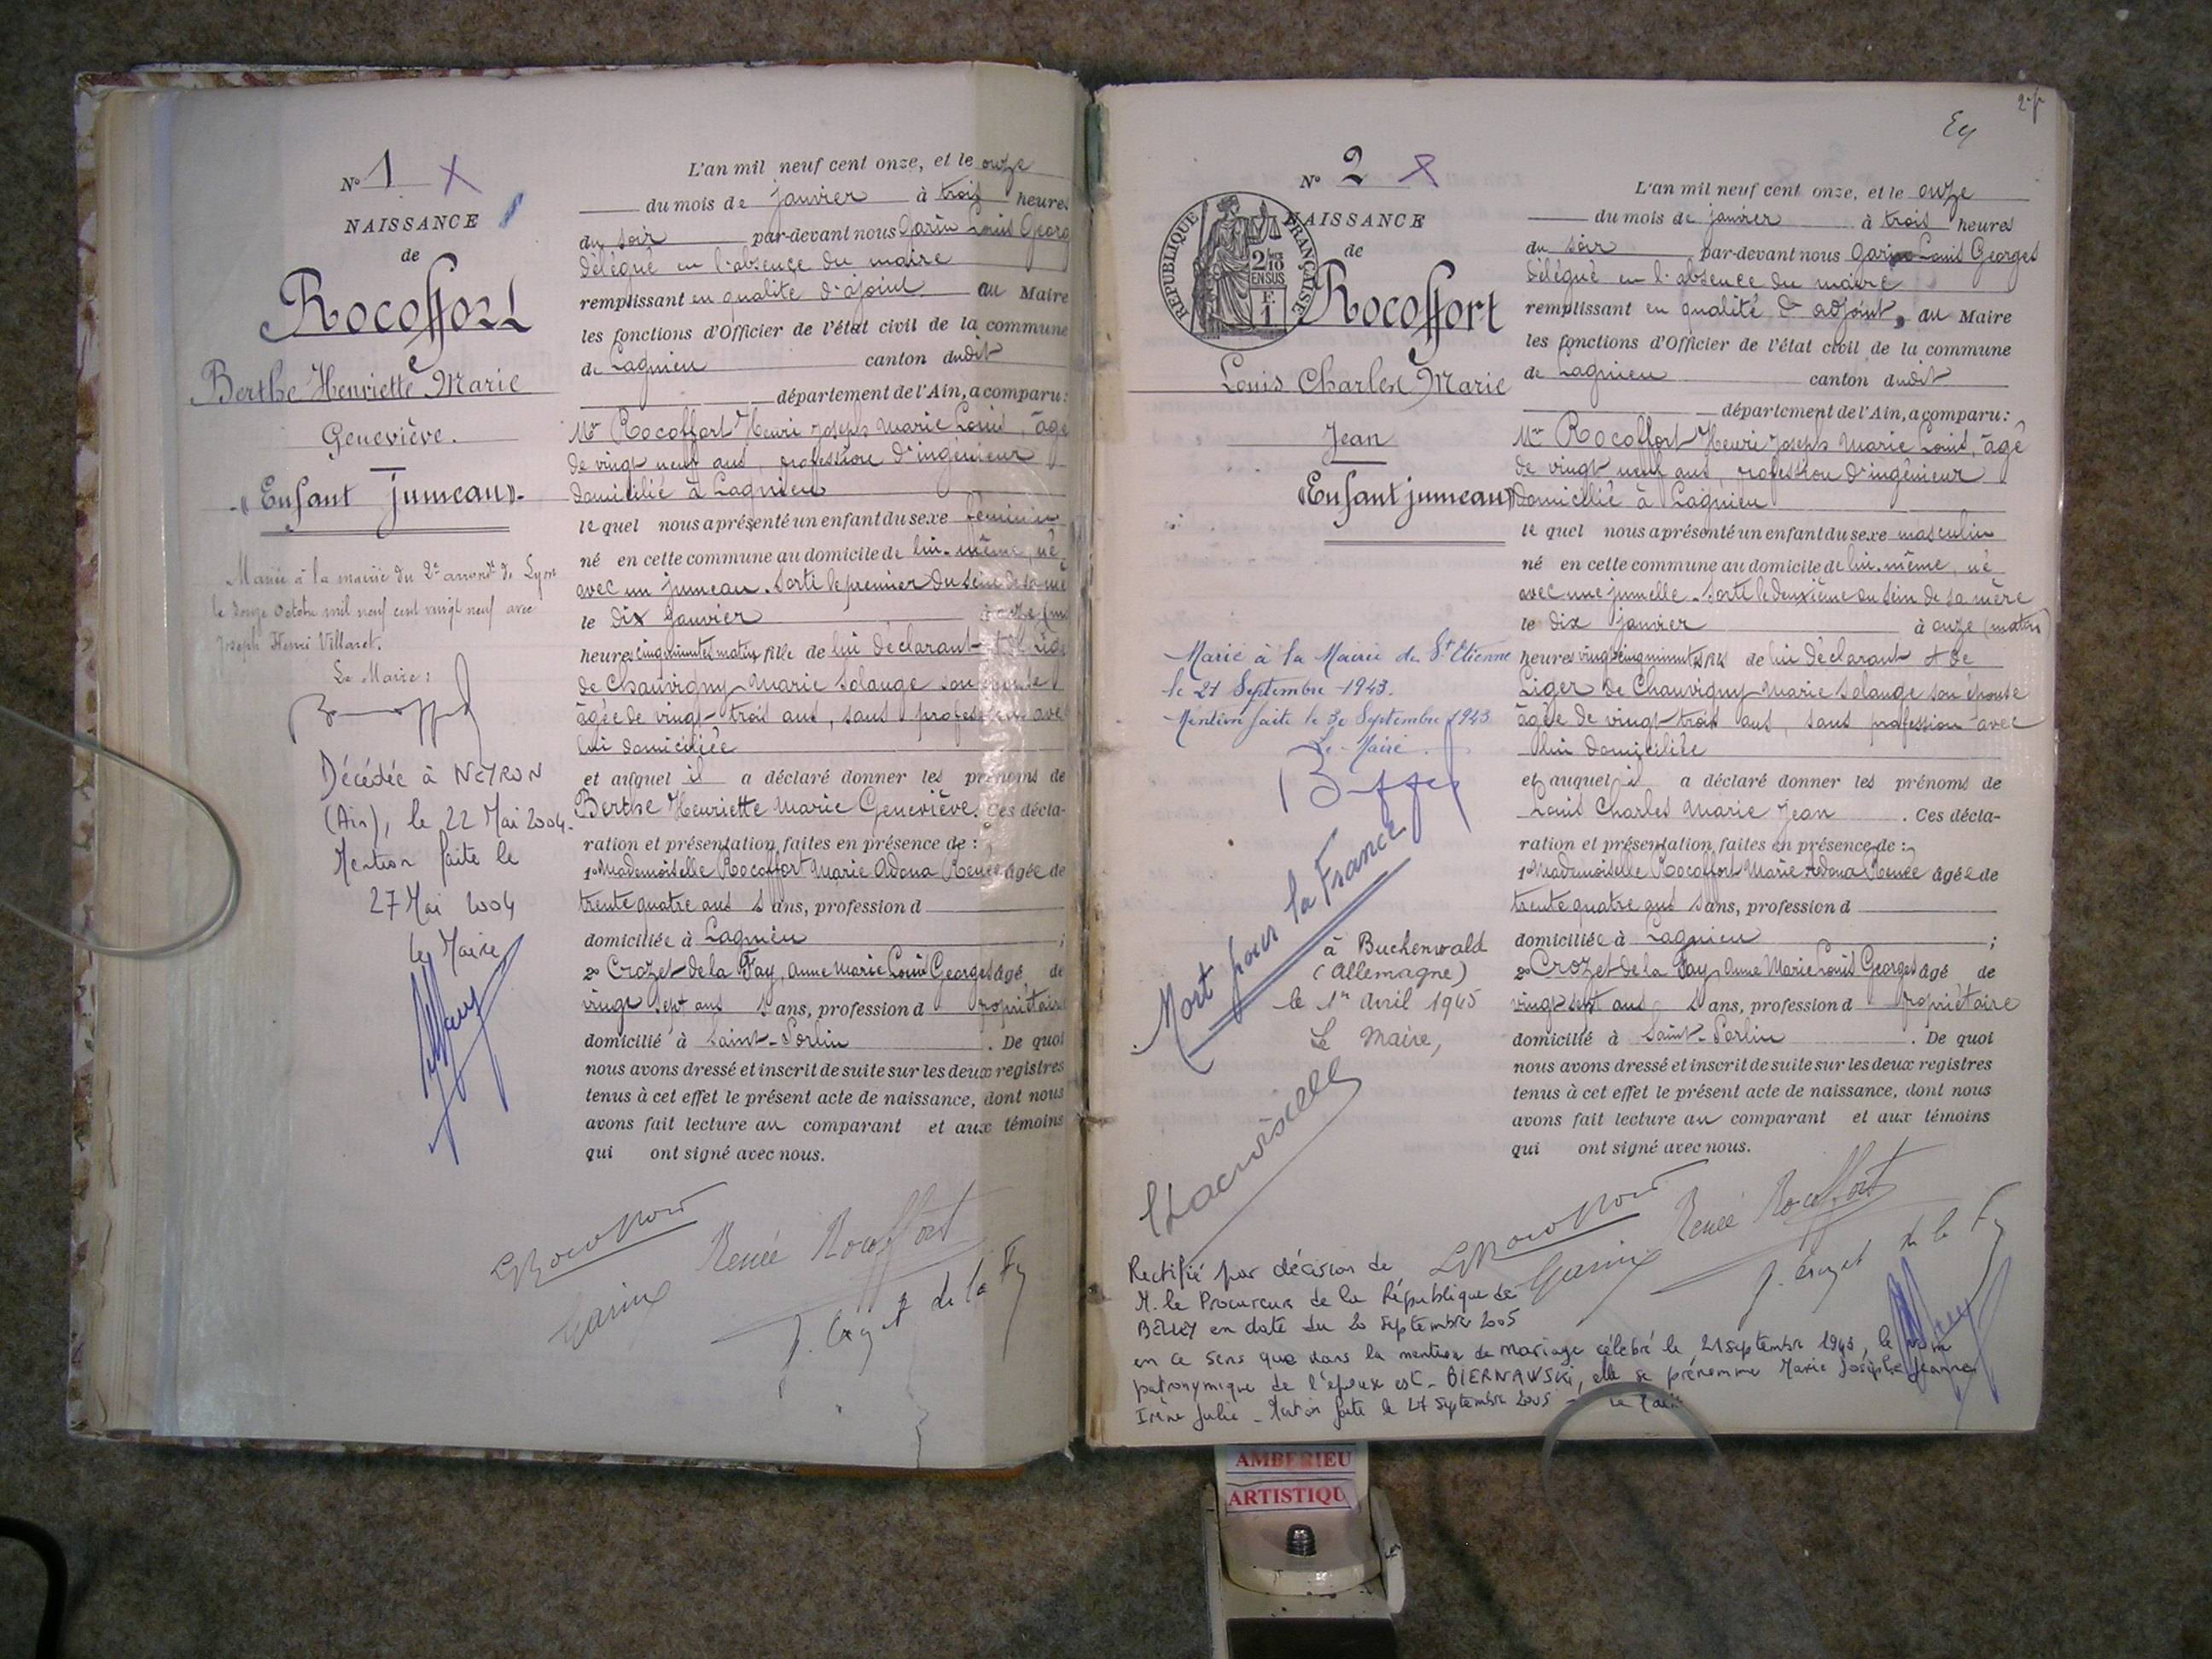 N° 1 X
NAISSANCE
de
Rocoffort
Berthe Henriette Marie
Geneviève.
"Enfant Jumeau".
Mariée à la mairie du 2e arrondt de Lyon
le douze octobre mil neuf cent vingt neuf avec
Joseph Henri Villaret.
Le Maire :
Décédée à NEYRON
(Ain), le 22 Mai 2004.
Mention faite le
27 Mai 2004
Le Maire
L'an mil neuf cent onze, et le onze
du mois de janvier à trois heures
du soir par-devant nous Garin Louis Georg
délégué en l'absence du maire
remplissant en qualité d'ajoint au Maire
les fonctions d'Officier de l'état civil de la commune
de Lagnieu canton dudit
département de l'Ain, a comparu :
Mr Rocoffort Henri Joseph Marie Louis, âgé
de vingt neuf ans, profession d'ingénieur
domicilié à Lagnieu
lequel nous a présenté un enfant du sexe féminin
né en cette commune au domicile de lui-même, né
avec un jumeau. Sorti le premier du sein de sa mè
le dix janvier à onze
heures cinq minutes matin fille de lui déclarant
de Chauvigny Marie Solange son épouse
âgée de vingt-trois ans, sans profession avec
lui domiciliée
et auquel il a déclaré donner les prénoms de
Berthe Henriette Marie Geneviève. Ces décla-
ration et présentation faites en présence de :
1° Mademoiselle Rocoffort Marie Adona Renée âgée de
trente quatre ans s ans, profession d
domiciliée à Lagnieu ;
2° Crozet de la Fay, Anne Marie Louis Georges âgé de
vingt sept ans s ans, profession d propriétaire
domicilié à Saint-Sorlin . De quoi
nous avons dressé et inscrit de suite sur les deux registres
tenus à cet effet le présent acte de naissance, dont nous
avons fait lecture au comparant et aux témoins
qui ont signé avec nous.
Renée Rocoffort
Garin
de la Fay
2e f
N° 2 X
NAISSANCE
de
RÉPUBLIQUE FRANÇAISE
2/10 EN SUS
F. 1
Rocoffort
Louis Charles Marie
Jean
"Enfant jumeau"
Marié à la Mairie de St Etienne
le 21 Septembre 1943.
Mention faite le 30 Septembre 1943
Le Maire.
Mort pour la France
à Buchenwald
(Allemagne)
le 1er Avril 1945
Le Maire,
L'an mil neuf cent onze, et le onze
du mois de janvier à trois heures
du soir par-devant nous Garin Louis Georges
délégué en l'absence du maire
remplissant en qualité d'adjoint, au Maire
les fonctions d'Officier de l'état civil de la commune
de Lagnieu canton dudit
département de l'Ain, a comparu :
Mr Rocoffort Henri Joseph Marie Louis, âgé
de vingt neuf ans, profession d'ingénieur
domicilié à Lagnieu
lequel nous a présenté un enfant du sexe masculin
né en cette commune au domicile de lui-même, né
avec une jumelle. Sorti le deuxième du sein de sa mère
le dix janvier à onze (matin)
heures vingt cinq minutes fils de lui déclarant et de
Liger de Chauvigny Marie Solange son épouse
âgée de vingt-trois ans, sans profession avec
lui domiciliée
et auquel il a déclaré donner les prénoms de
Louis Charles Marie Jean . Ces décla-
ration et présentation faites en présence de :
1° Mademoiselle Rocoffort Marie Adona Renée âgée de
trente quatre ans s ans, profession d
domiciliée à Lagnieu ;
2° Crozet de la Fay, Anne Marie Louis Georges âgé de
vingt sept ans s ans, profession d propriétaire
domicilié à Saint-Sorlin . De quoi
nous avons dressé et inscrit de suite sur les deux registres
tenus à cet effet le présent acte de naissance, dont nous
avons fait lecture au comparant et aux témoins
qui ont signé avec nous.
Renée Rocoffort
Garin
J. Crozet de la Fay
Rectifié par décision de
M. le Procureur de la République de
BELLEY en date du 20 Septembre 2005
en ce sens que dans la mention de mariage célébré le 21 septembre 1943, le nom
patronymique de l'épouse est BIERNAWSKI, elle se prénomme Marie Josèphe Jeanne
Irène Julie - Mention faite le 27 Septembre 2005 - Le Maire
AMBERIEU
ARTISTIQU